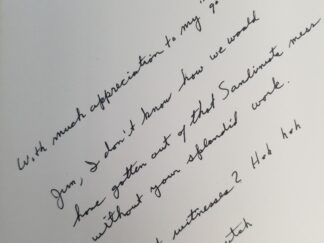 With much appreciation to my "go
Jim, I don't know how we would
have gotten out of that Sanlinista mess
without your splendid work.
witnesses? Hah hah